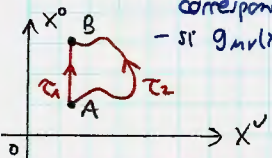 correspon
- si gμν(x
X⁰
B
τ₁
A
τ₂
0
Xᵛ